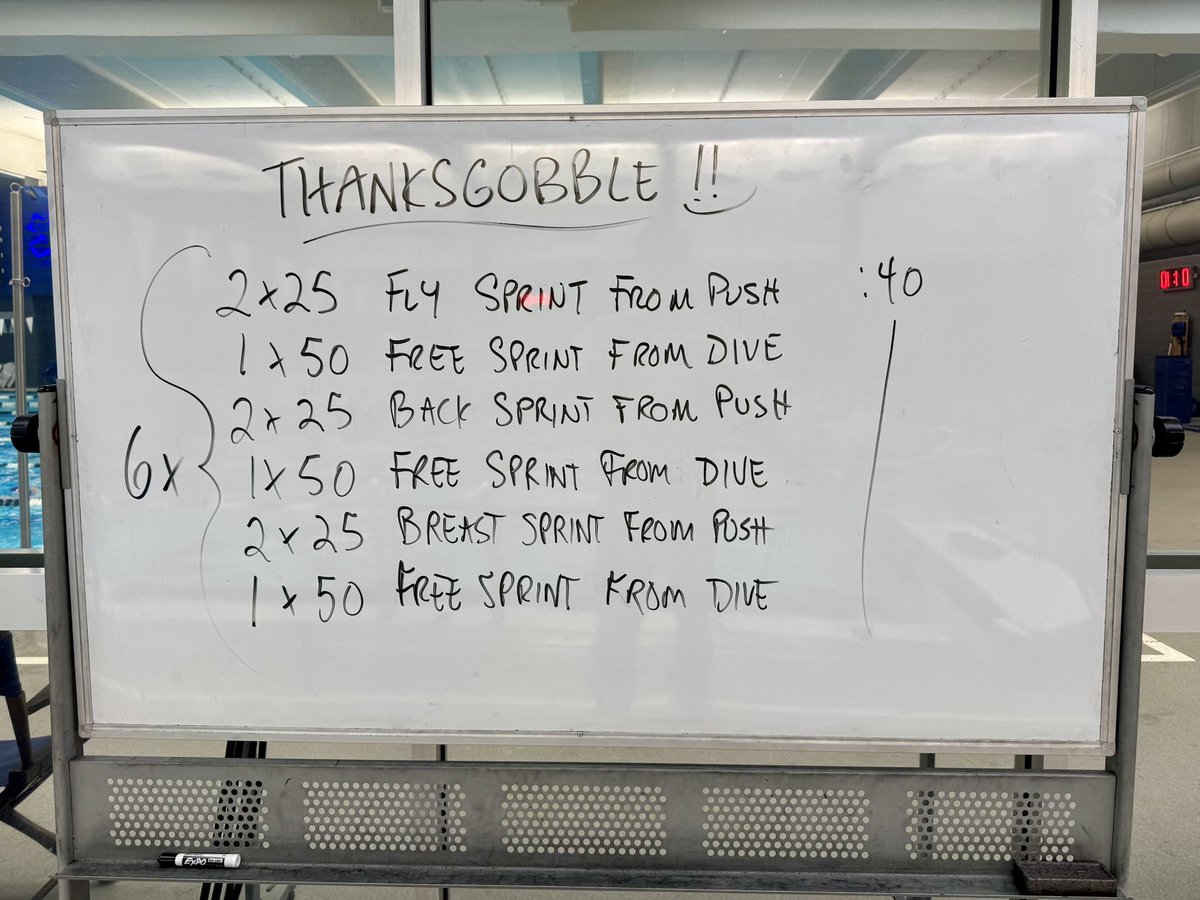 THANKSGOBBLE!!
2x25 FLY SPRINT FROM PUSH :40
1x50 FREE SPRINT FROM DIVE
2x25 BACK SPRINT FROM PUSH
6x 1x50 FREE SPRINT FROM DIVE
2x25 BREAST SPRINT FROM PUSH
1x50 FREE SPRINT FROM DIVE
EXPO